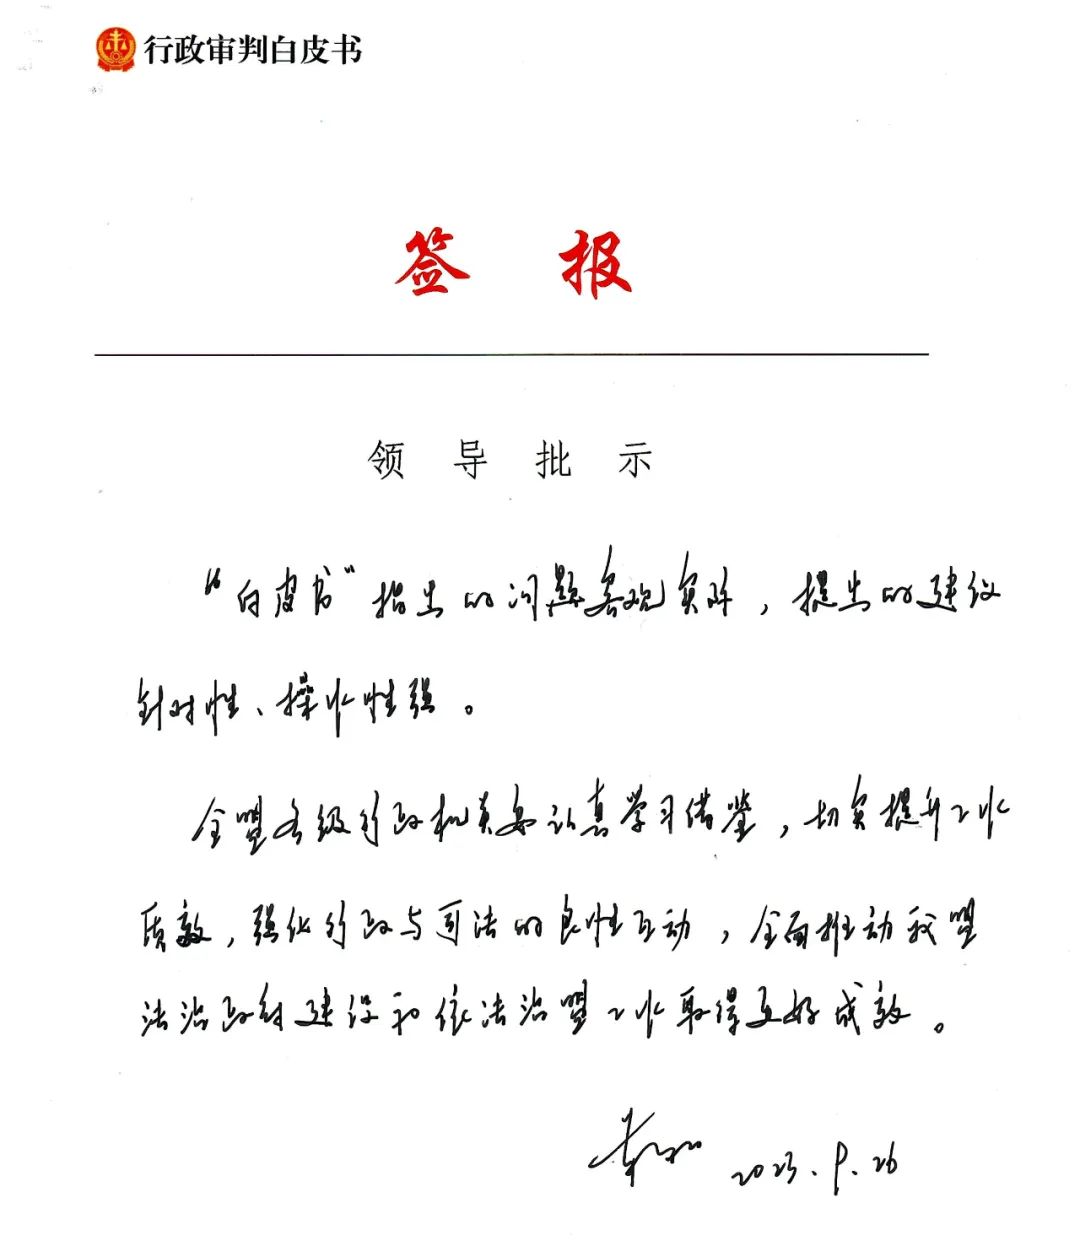 行政审判白皮书
签 报
领 导 批 示
“白皮书”指出的问题客观实际，提出的建议
针对性、操作性强。
全盟各级行政机关要认真学习借鉴，切实提升工作
质效，强化行政与司法的良性互动，全面推动我盟
法治政府建设和依法治盟工作取得更好成效。
2023.9.26